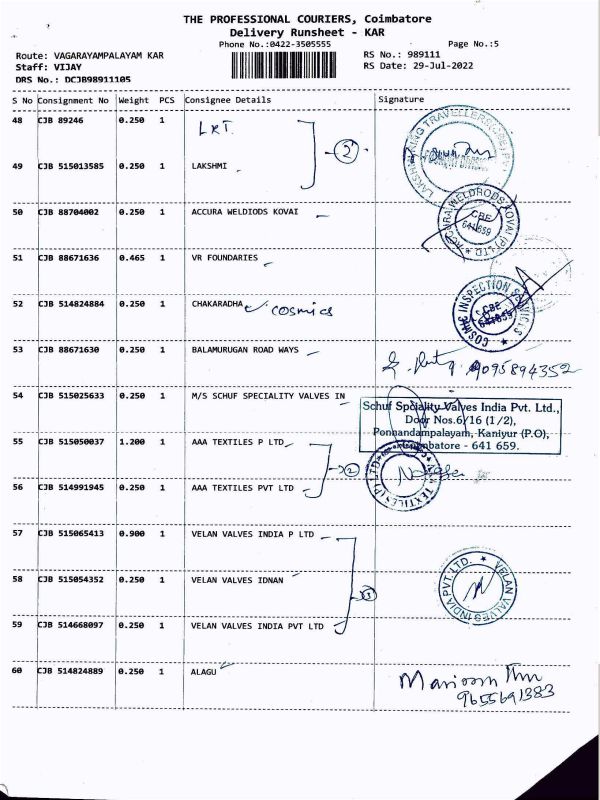 THE PROFESSIONAL COURIERS, Coimbatore
Delivery Runsheet - KAR
Phone No.:0422-3505555 Page No.:5
Route: VAGARAYAMPALAYAM KAR RS No.: 989111
Staff: VIJAY RS Date: 29-Jul-2022
DRS No.: DCJB98911105
S No Consignment No Weight PCS Consignee Details Signature
48 CJB 89246 0.250 1 LRT. 2
49 CJB 515013585 0.250 1 LAKSHMI
50 CJB 88704002 0.250 1 ACCURA WELDIODS KOVAI
CBE
641 659
51 CJB 88671636 0.465 1 VR FOUNDARIES
52 CJB 514824884 0.250 1 CHAKARADHA cosmics
COSMIC INSPECTION SERVICES
CBE
641659
53 CJB 88671630 0.250 1 BALAMURUGAN ROAD WAYS
9095894352
54 CJB 515025633 0.250 1 M/S SCHUF SPECIALITY VALVES IN
Schuf Spciality Valves India Pvt. Ltd.,
Door Nos.6/16 (1/2),
Ponnandampalayam, Kaniyur (P.O),
Coimbatore - 641 659.
55 CJB 515050037 1.200 1 AAA TEXTILES P LTD 2
56 CJB 514991945 0.250 1 AAA TEXTILES PVT LTD
57 CJB 515065413 0.900 1 VELAN VALVES INDIA P LTD
58 CJB 515054352 0.250 1 VELAN VALVES IDNAN 3
VELAN VALVES INDIA PVT. LTD.
59 CJB 514668097 0.250 1 VELAN VALVES INDIA PVT LTD
60 CJB 514824889 0.250 1 ALAGU
9655691383